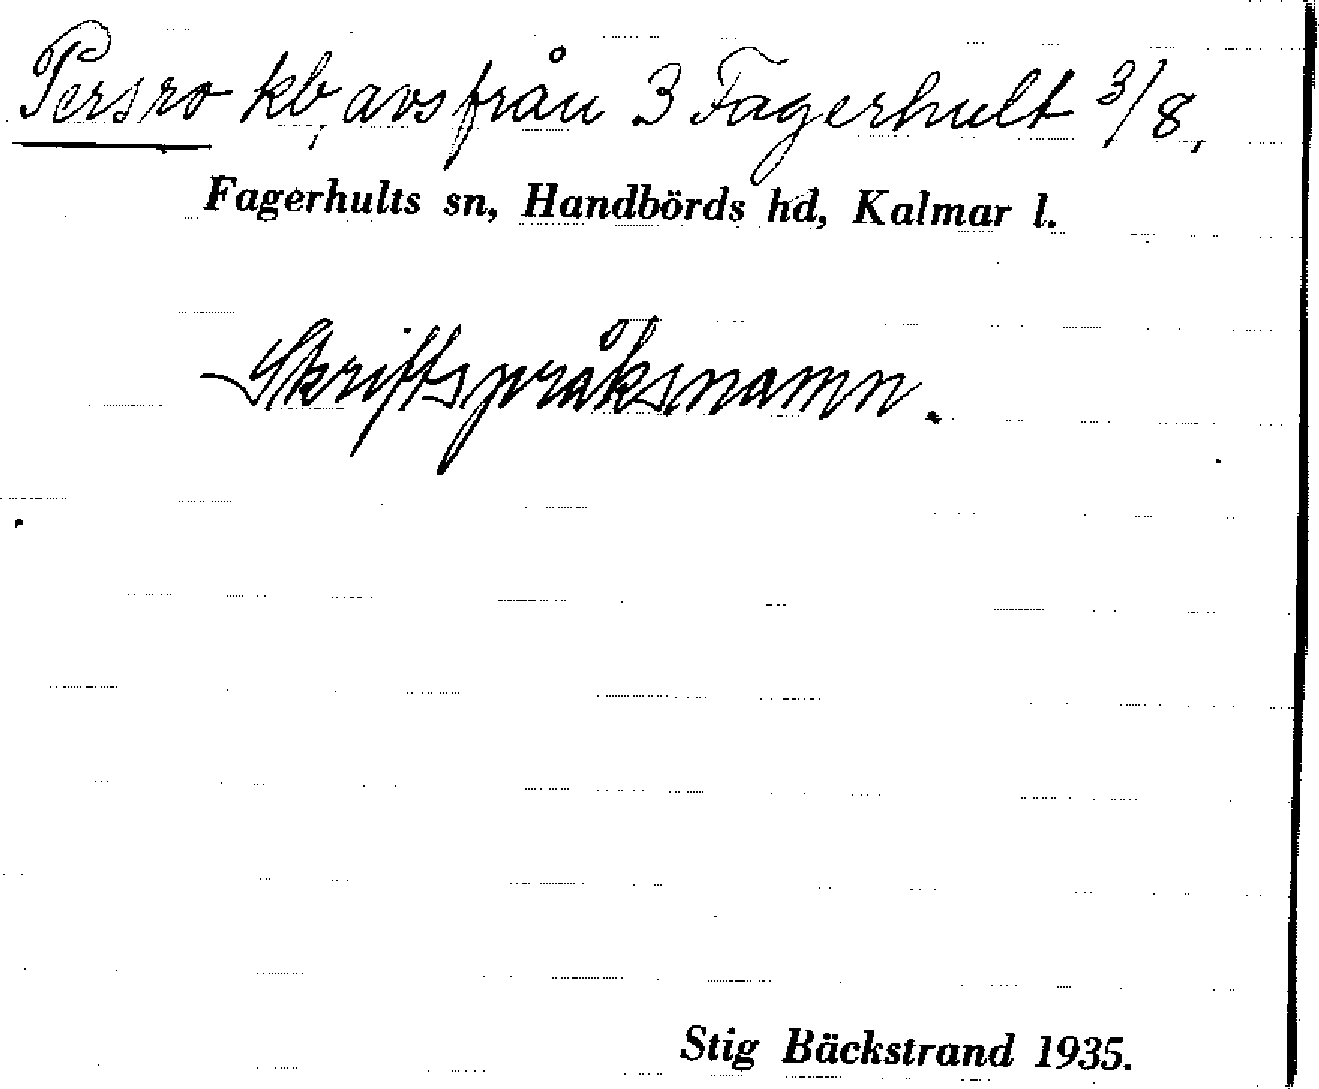 Persro kb, avs från 3 Fagerhult 3/8,
Fagerhults sn, Handbörds hd, Kalmar l.
Skriftspråksnamn.
Stig Bäckstrand 1935.